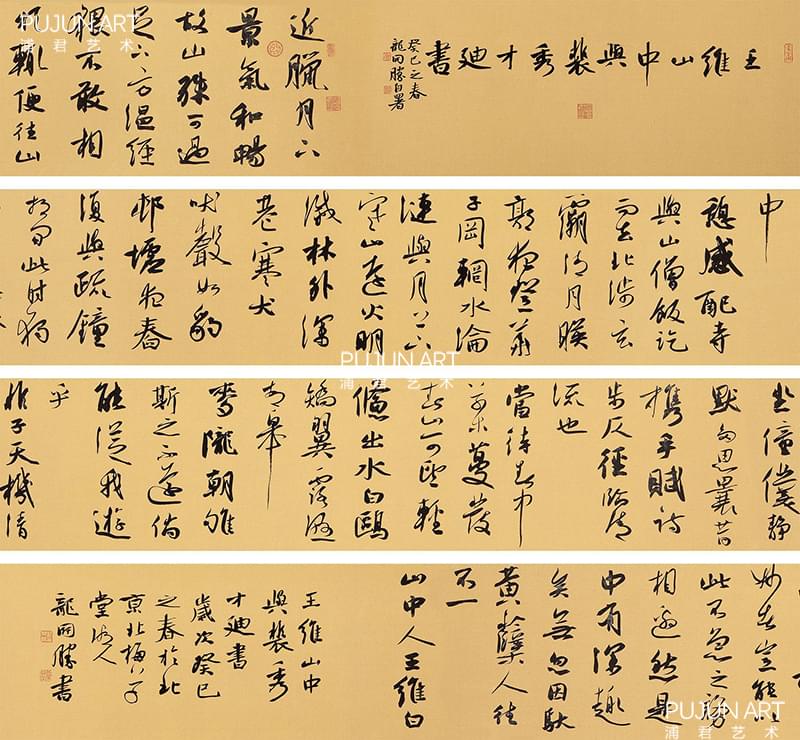 PUJUN ART
浦君艺术
王維山中與裴秀才廸書
癸巳之春
龍開勝自署
近臘月下
景氣和暢
故山殊可過
足下方溫經
猥不敢相
煩輒便往山
中
憩感配寺
與山僧飯訖
而去北涉玄
灞清月暎
郭夜登華
子岡輞水淪
漣與月上下
寒山遠火明
滅林外深
巷寒犬
吠聲如豹
邨墟夜舂
復與疏鐘
相間此時獨
PUJUN ART
浦君艺术
坐僮僕靜
默多思曩昔
攜手賦詩
步仄徑臨清
流也
當待春中
草木蔓發
春山可望輕
鯈出水白鷗
矯翼露濕
青皋
麥隴朝雊
斯之不遠倘
能從我遊
乎
非子天機清
妙者豈能以
此不急之務
相邀然是
中有深趣
矣無忽因馱
黃蘗人往
不一
山中人王維白
王維山中
與裴秀
才廸書
歲次癸巳
之春於北
京北梅
堂
龍開勝書
PUJUN ART
浦君艺术